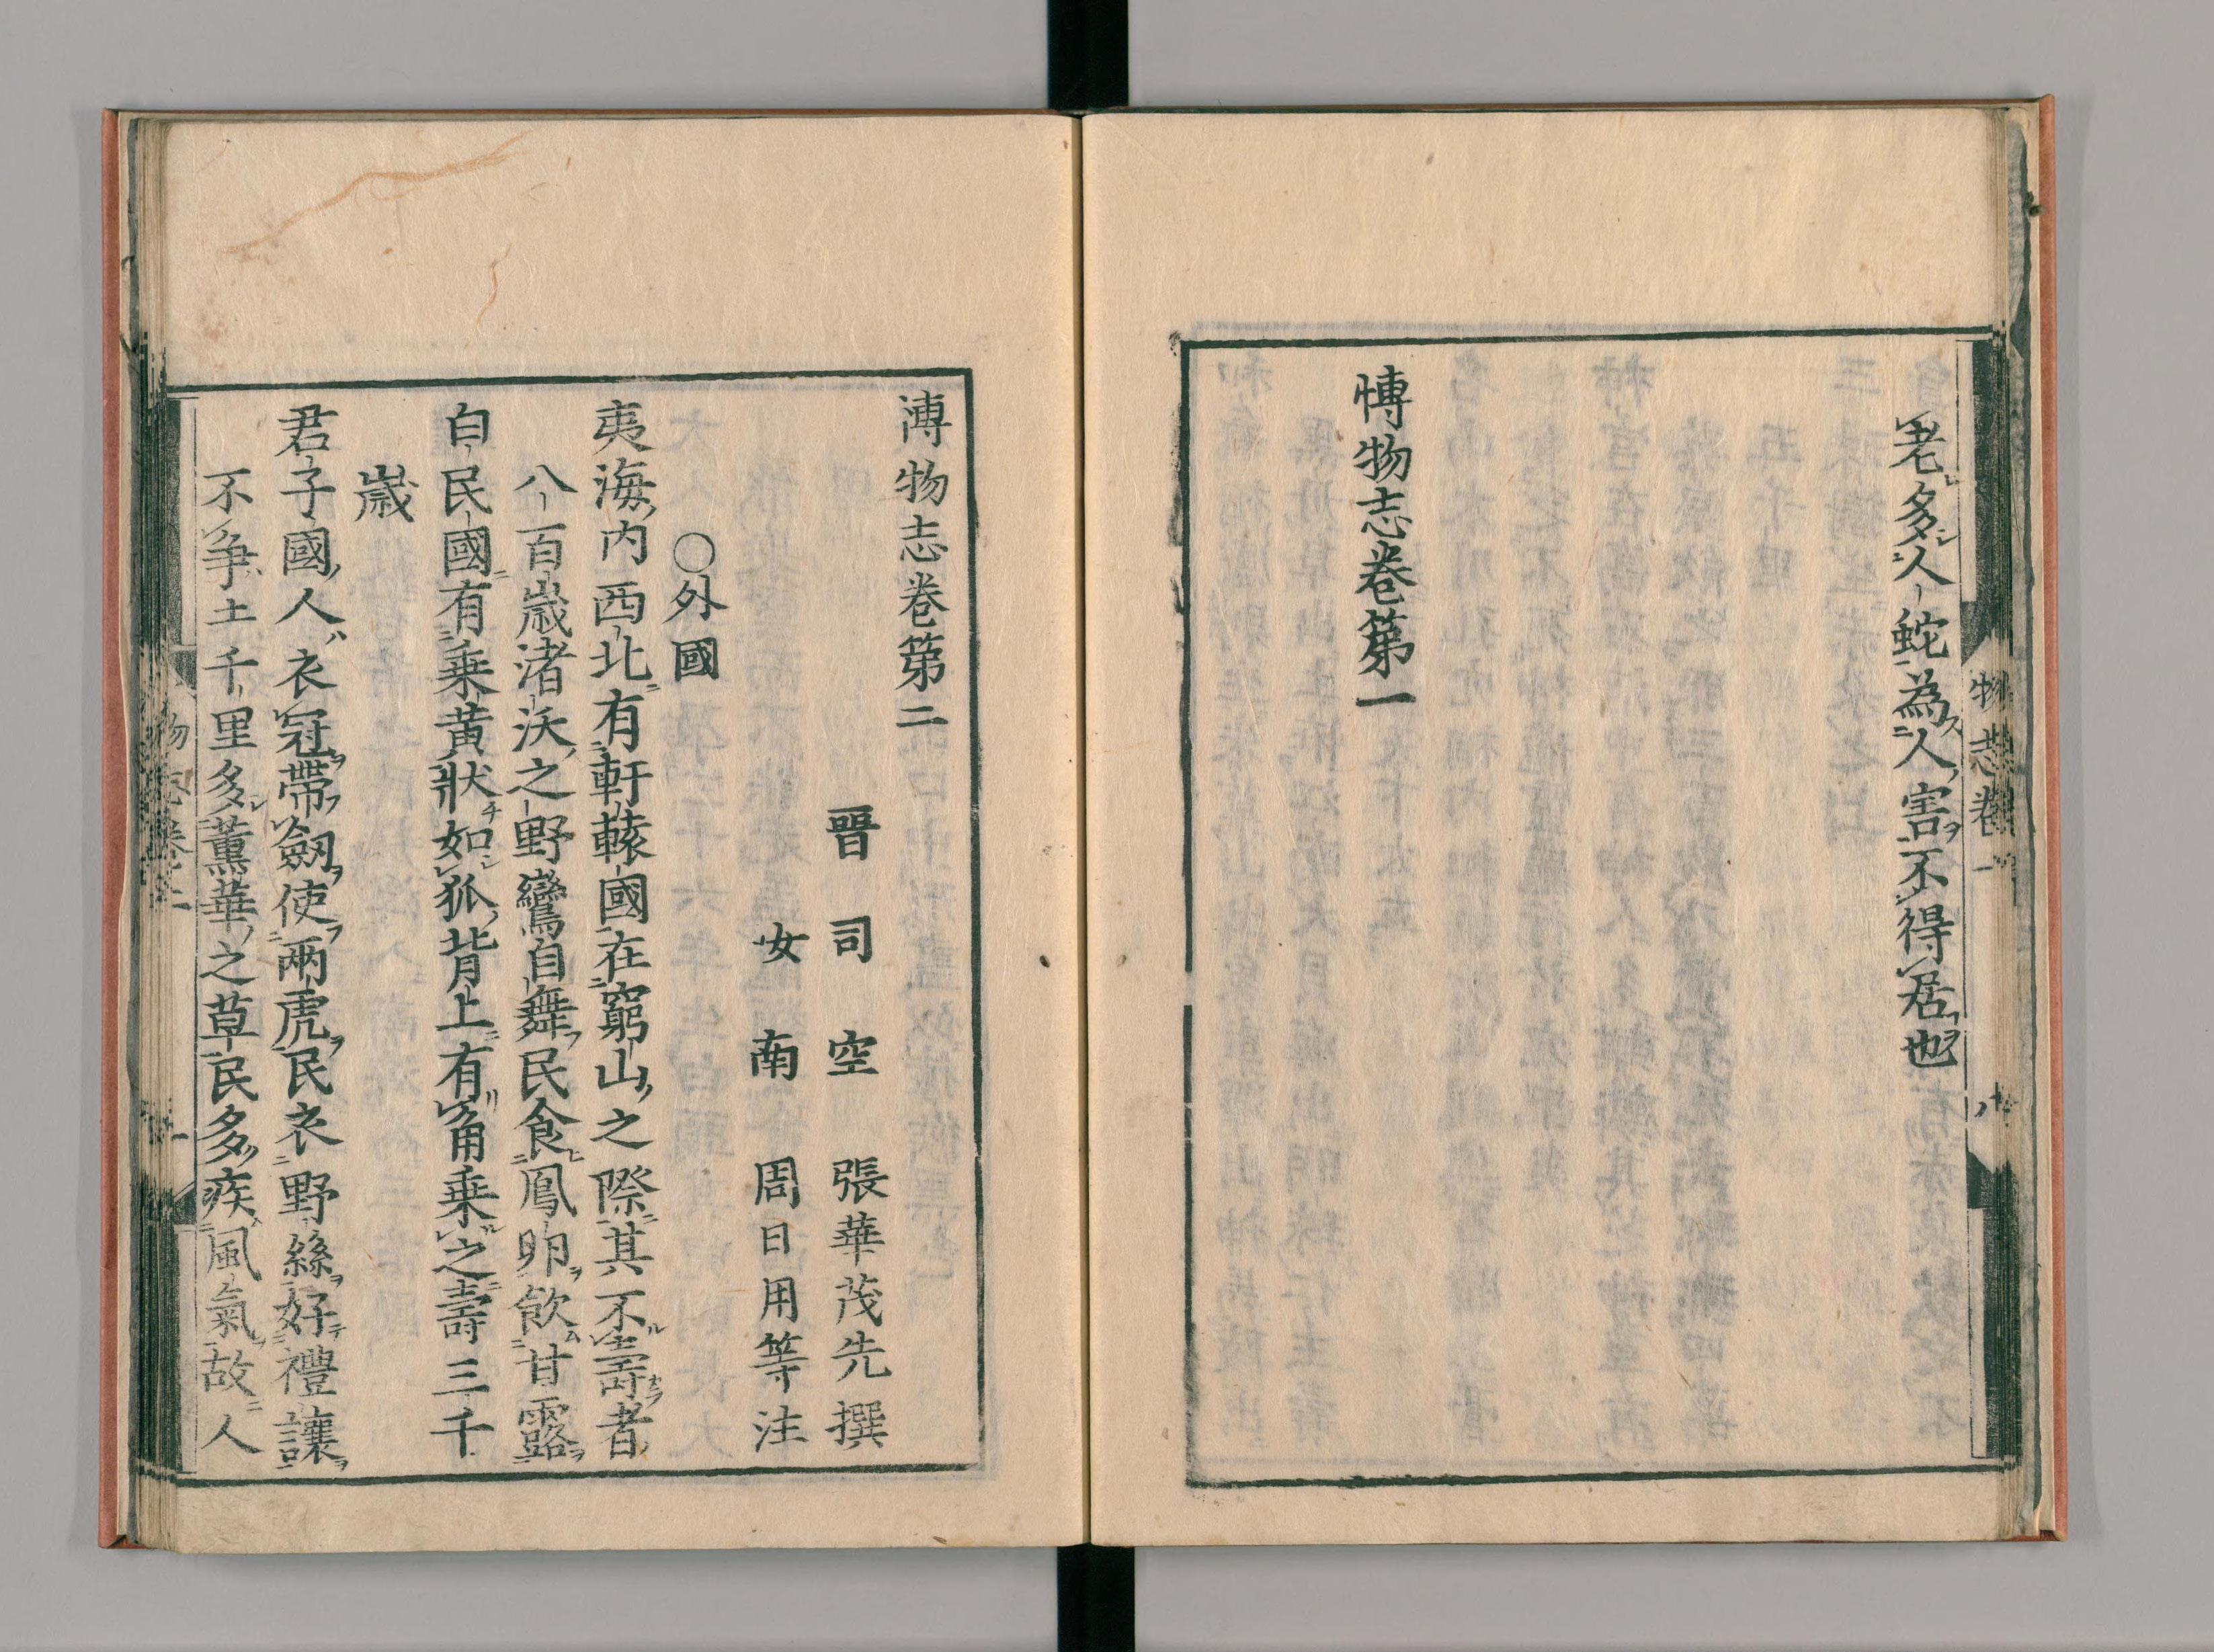 老多人蛇為人害不得居也
博物志卷第一
物志卷一
八
博物志卷第二
晉司空張華茂先撰
女南周日用等注
○外國
夷海内西北有軒轅國在窮山之際其不壽者
八百歳渚沃之野鸞自舞民食鳳卵飲甘露
白民國有乗黄狀如狐背上有角乗之壽三千
歳
君子國人衣冠帶劔使兩虎民衣野絲好禮讓
不争土千里多薫華之草民多疾風氣故人
物志卷二
一